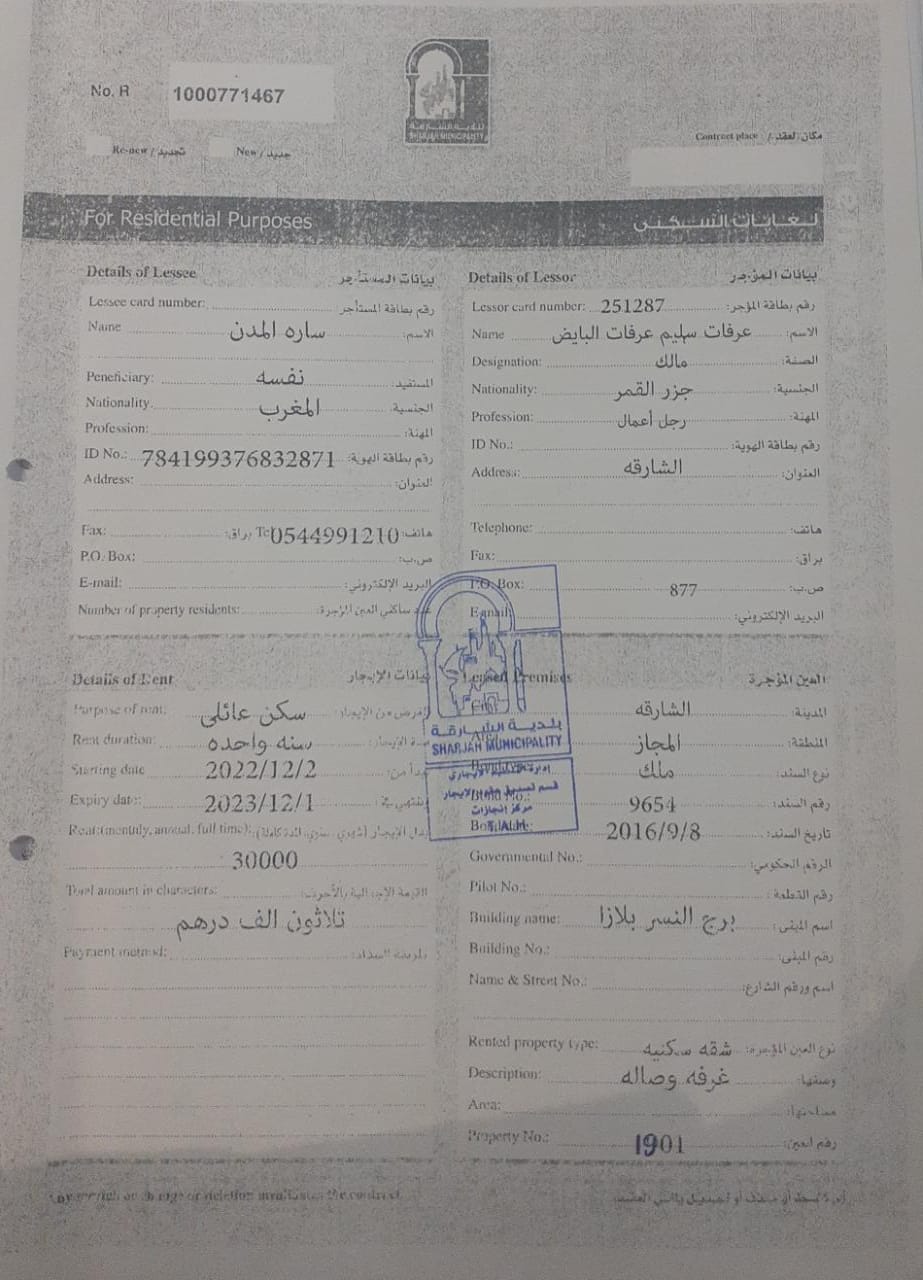 No. R 1000771467
بلدية الشارقة
SHARJAH MUNICIPALITY
Re-new / تجديد New / جديد
Contract place / مكان العقد
For Residential Purposes لغايات السكنى
Details of Lessee بيانات المستأجر
Lessee card number: رقم بطاقة المستأجر:
Name ساره المدن الاسم:
Peneficiary: نفسه المستفيد:
Nationality. المغرب الجنسية:
Profession: المهنة:
ID No.: 784199376832871 رقم بطاقة الهوية:
Address: العنوان:
Fax: براق: Tel 0544991210 هاتف:
P.O. Box: ص.ب:
E-mail: البريد الإلكتروني:
Number of property residents: ساكني العين المؤجرة:
Details of Lessor بيانات المؤجر
Lessor card number: 251287 رقم بطاقة المؤجر:
Name عرفات سليم عرفات البايض الاسم:
Designation: مالك الصفة:
Nationality: جزر القمر الجنسية:
Profession: رجل أعمال المهنة:
ID No.: رقم بطاقة الهوية:
Address: الشارقه العنوان:
Telephone: هاتف:
Fax: براق:
P.O. Box: 877 ص.ب:
E-mail: البريد الإلكتروني:
Details of Rent بيانات الإيجار
Purpose of rent: سكن عائلى الغرض من الإيجار:
Rent duration: سنه واحده مدة الإيجار:
Starting date 2022/12/2 يبدأ من:
Expiry date: 2023/12/1 ينتهي في:
Rent(montly, annual, full time): بدل الإيجار (شهري، سنوي، المدة كاملة):
30000
Total amount in characters: القيمة الإجمالية بالأحرف:
ثلاثون الف درهم
Payment method: طريقة السداد:
Leased Premises العين المؤجرة
الشارقه المدينة:
المجاز المنطقة:
ملك نوع السند:
9654 رقم السند:
2016/9/8 تاريخ السند:
Governmental No.: الرقم الحكومي:
Pilot No.: رقم القطعة:
Building name: برج النسر بلازا اسم المبنى:
Building No.: رقم المبنى:
Name & Street No.: اسم ورقم الشارع:
Rented property type: شقه سكنيه نوع العين المؤجرة:
Description: غرفه وصاله وصفها:
Area: مساحتها:
Property No.: 1901 رقم العين:
بلدية الشارقة
SHARJAH MUNICIPALITY
مركز إنجازات